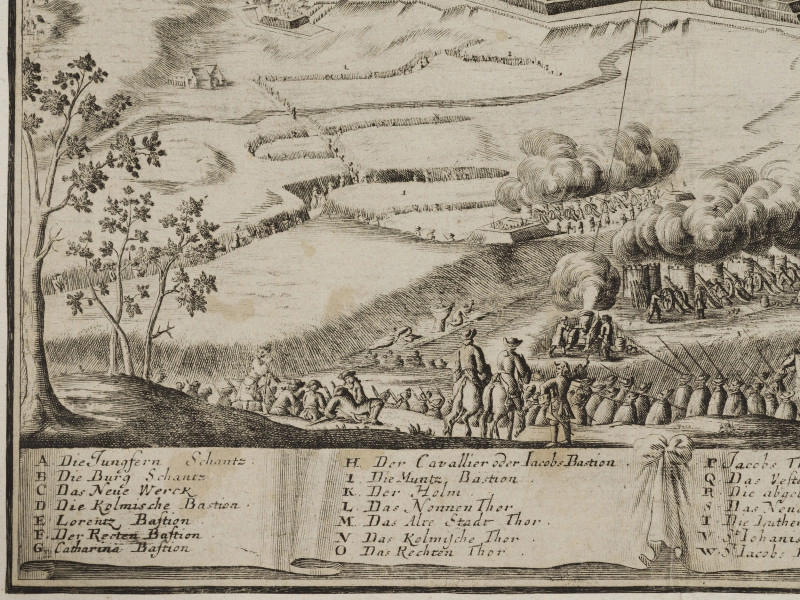 A Die Jungfern Schantz.
B Die Burg Schantz
C Das Neue Werck
D Die Kolmische Bastion.
E Lorentz Bastion
F. Der Recten Bastion.
G. Catharina Bastion
H. Der Cavallier oder Iacobs Bastion.
I. Die Muntz Bastion.
K. Der Holm
L. Das Nonnen Thor
M. Das Alte Stadt Thor.
N. Das Kolmische Thor.
O Das Rechten Thor.
P Jacobs
Q Das
R Die
S Das
T Die
V St
W St. Iacobs